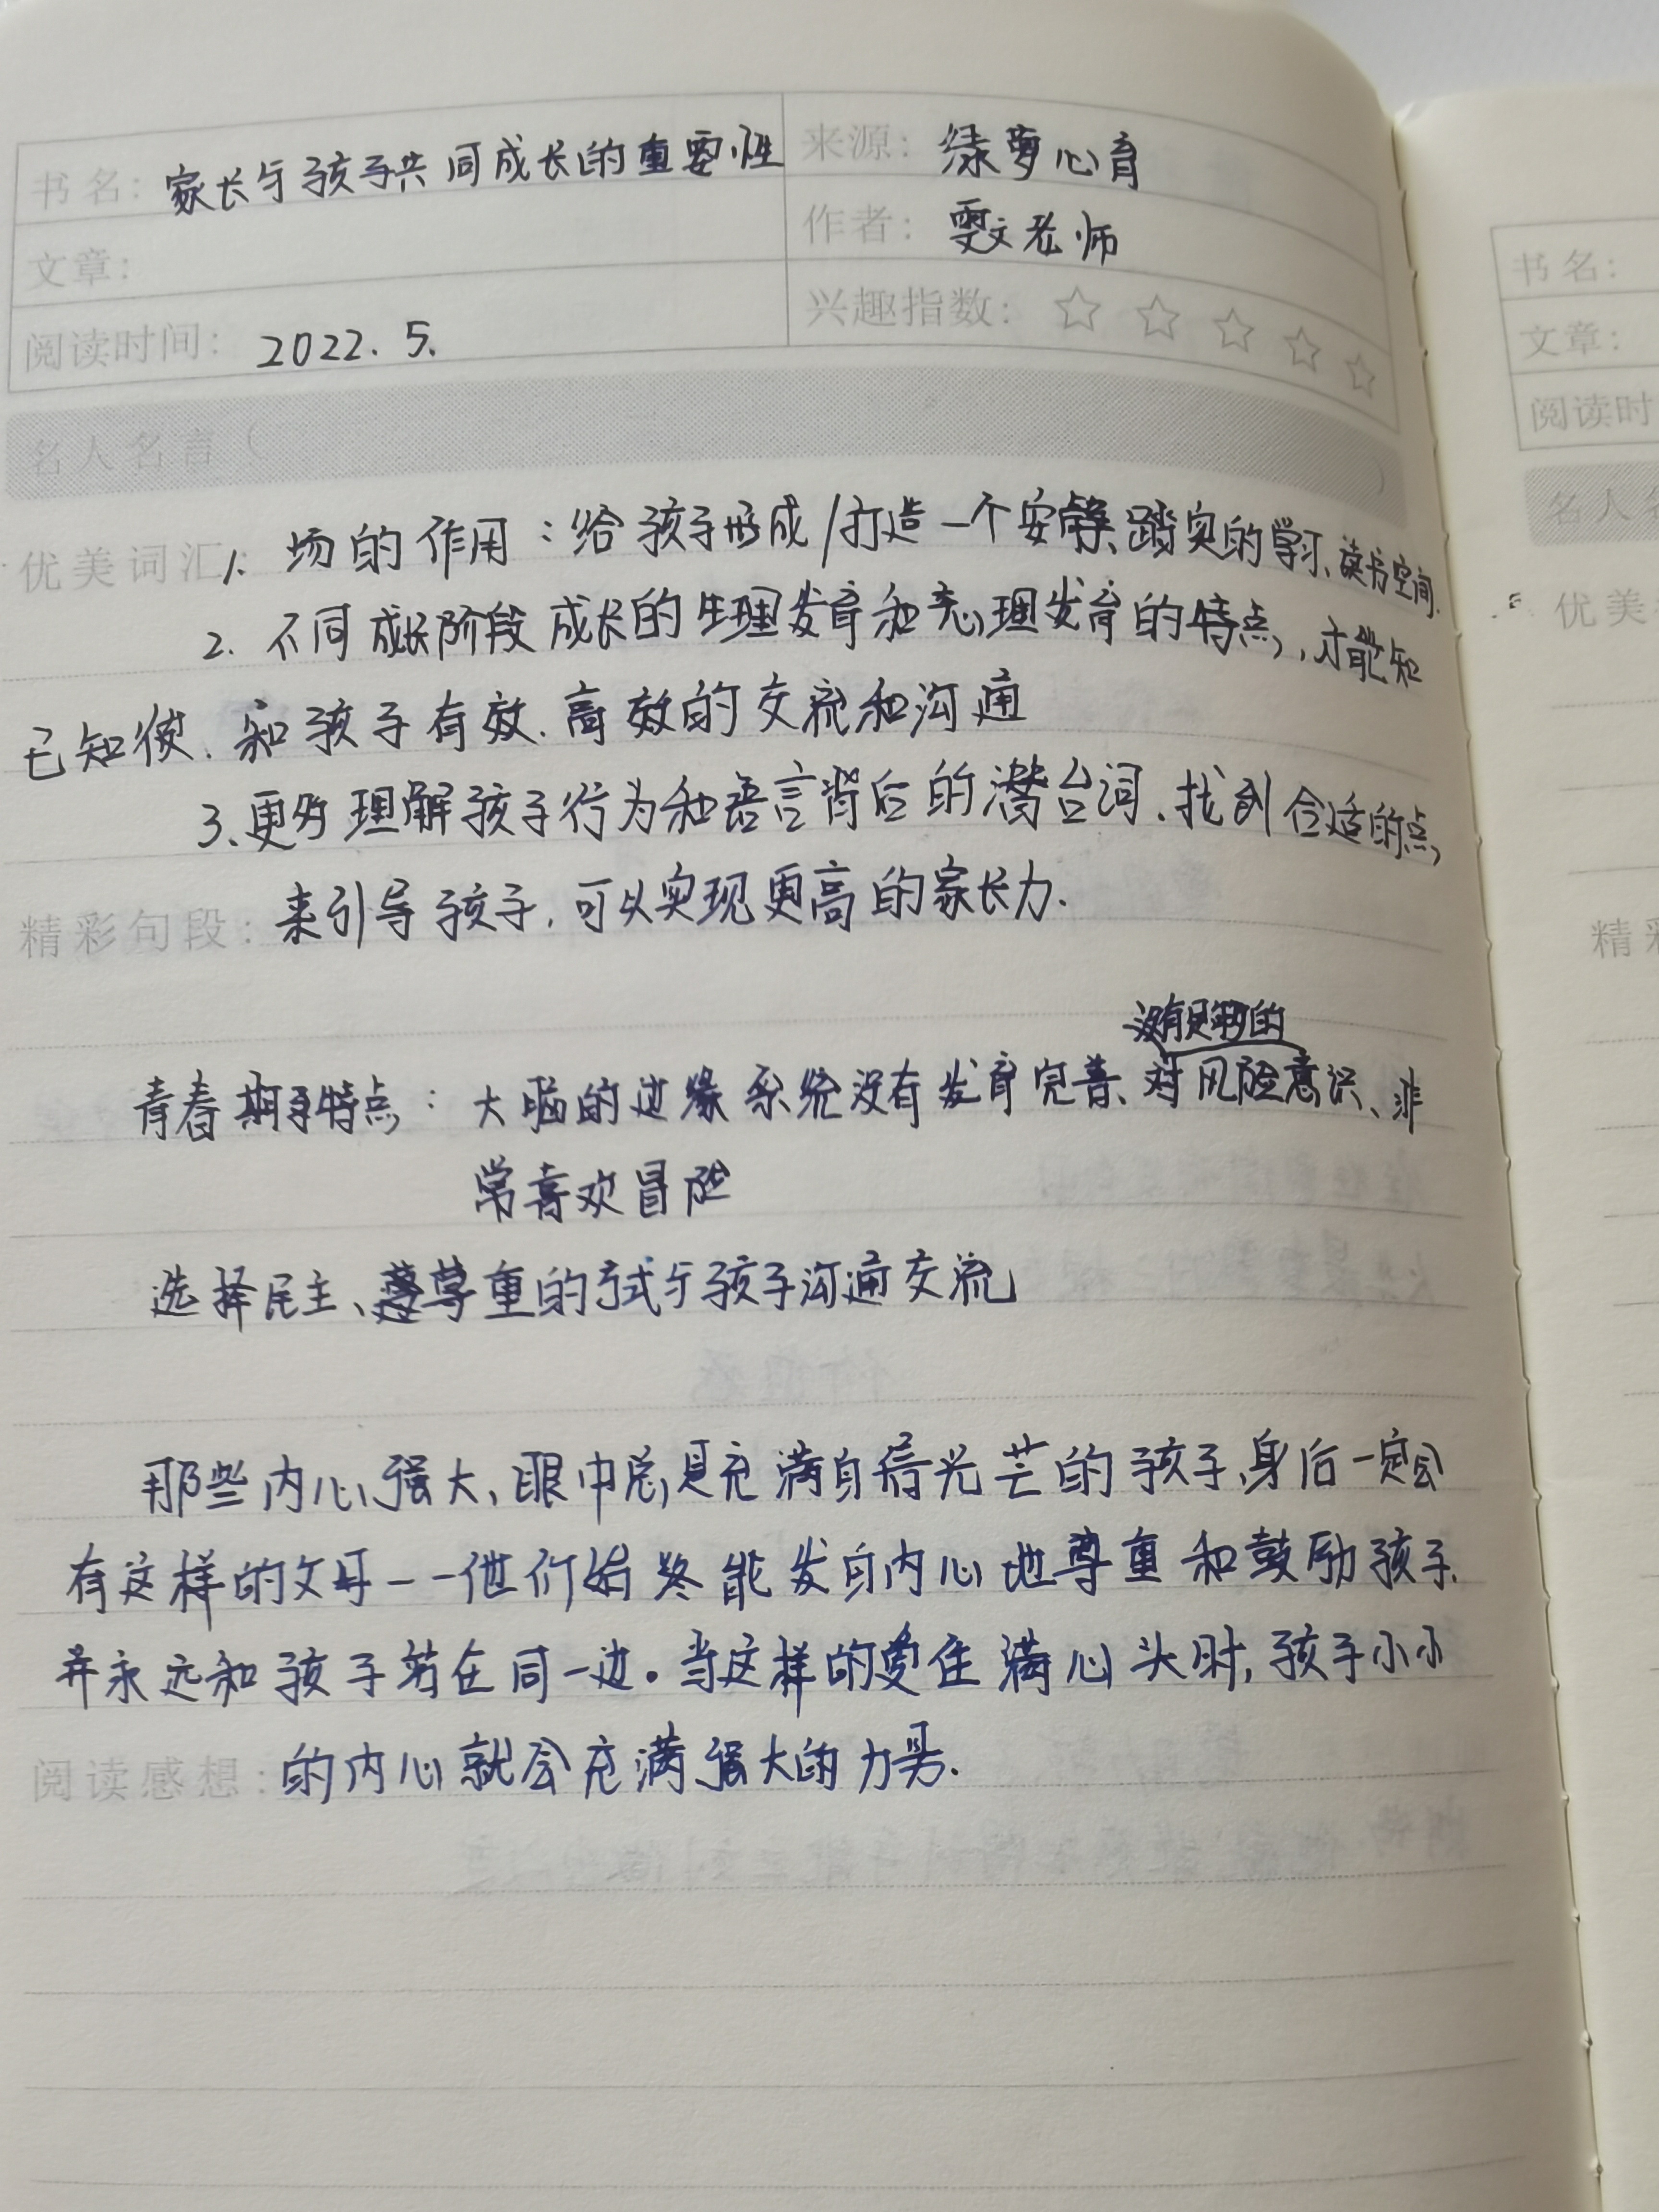 书名：家长与孩子共同成长的重要性
来源：绿萝心育
文章：
作者：雯文老师
阅读时间：2022.5.
兴趣指数：☆☆☆☆☆
名人名言（ ）
优美词汇：1. 场的作用：给孩子形成/打造一个安静、踏实的学习、读书空间.
2. 不同成长阶段成长的生理发育和心理发育的特点，才能知
己知彼.和孩子有效.高效的交流和沟通
3.更好理解孩子行为和语言背后的潜台词.找到合适的点,
精彩句段：来引导孩子,可以实现更高的家长力.
没有足够的
青春期特点：大脑的边缘系统没有发育完善、对风险意识、非
常喜欢冒险
选择民主、尊重的方式与孩子沟通交流
那些内心强大、眼中总是充满自信光芒的孩子,身后一定会
有这样的父母--他们始终能发自内心地尊重和鼓励孩子.
并永远和孩子站在同一边。当这样的爱住满心头时,孩子小小
阅读感想：的内心就会充满强大的力量.
书名：
文章：
阅读时
名人名
优美
精彩